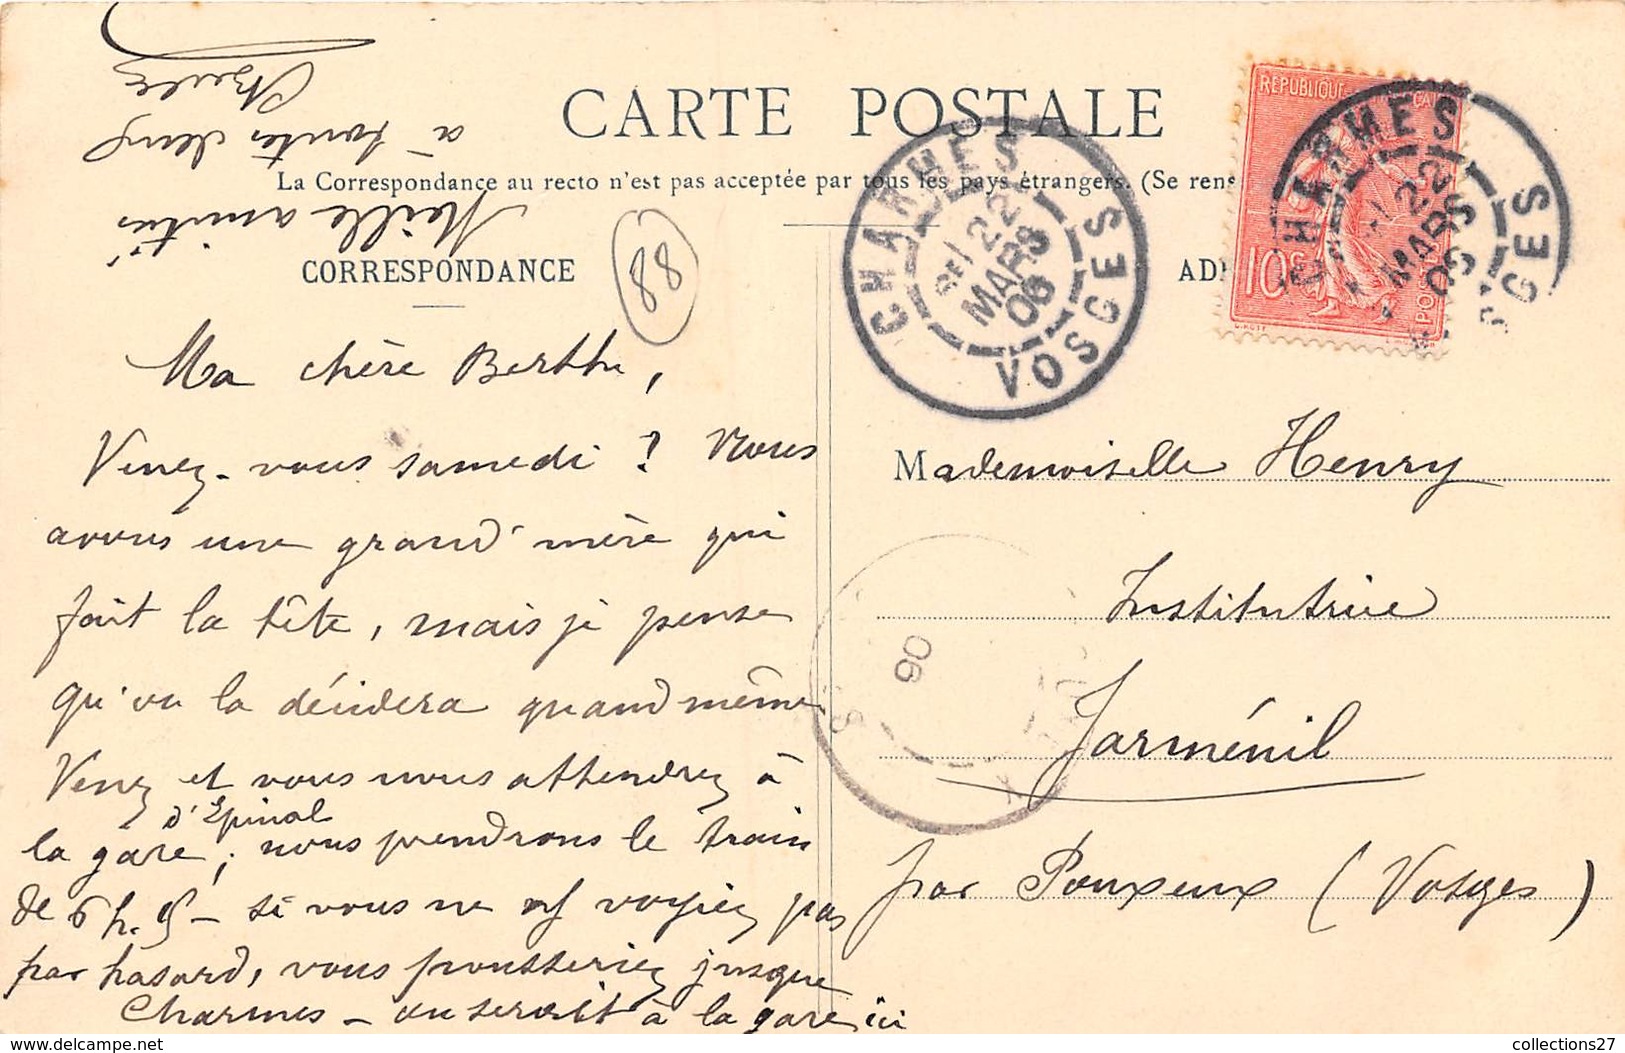 CARTE POSTALE
La Correspondance au recto n'est pas acceptée par tous les pays étrangers. (Se rens
CORRESPONDANCE
88
Ma chère Berthe,
Venez-vous samedi ? Nous
avons une grand'mère qui
fait la tête, mais je pense
qu'on la décidera quand même
Venez et vous nous attendrez à
d'Epinal
la gare; nous prendrons le train
de 6 h. 5 – si vous ne voyiez pas
par hasard, vous pousseriez jusque
Charmes – on serait à la gare ici
Meille amitiés
à toutes deux
CHARMES
22
MARS
06
VOSGES
RÉPUBLIQUE
10c
POSTES
CHARMES
22
MARS
06
VOSGES
Mademoiselle Henry
Institutrice
Jarménil
par Pouxeux (Vosges)
06
delcampe.net
collections27